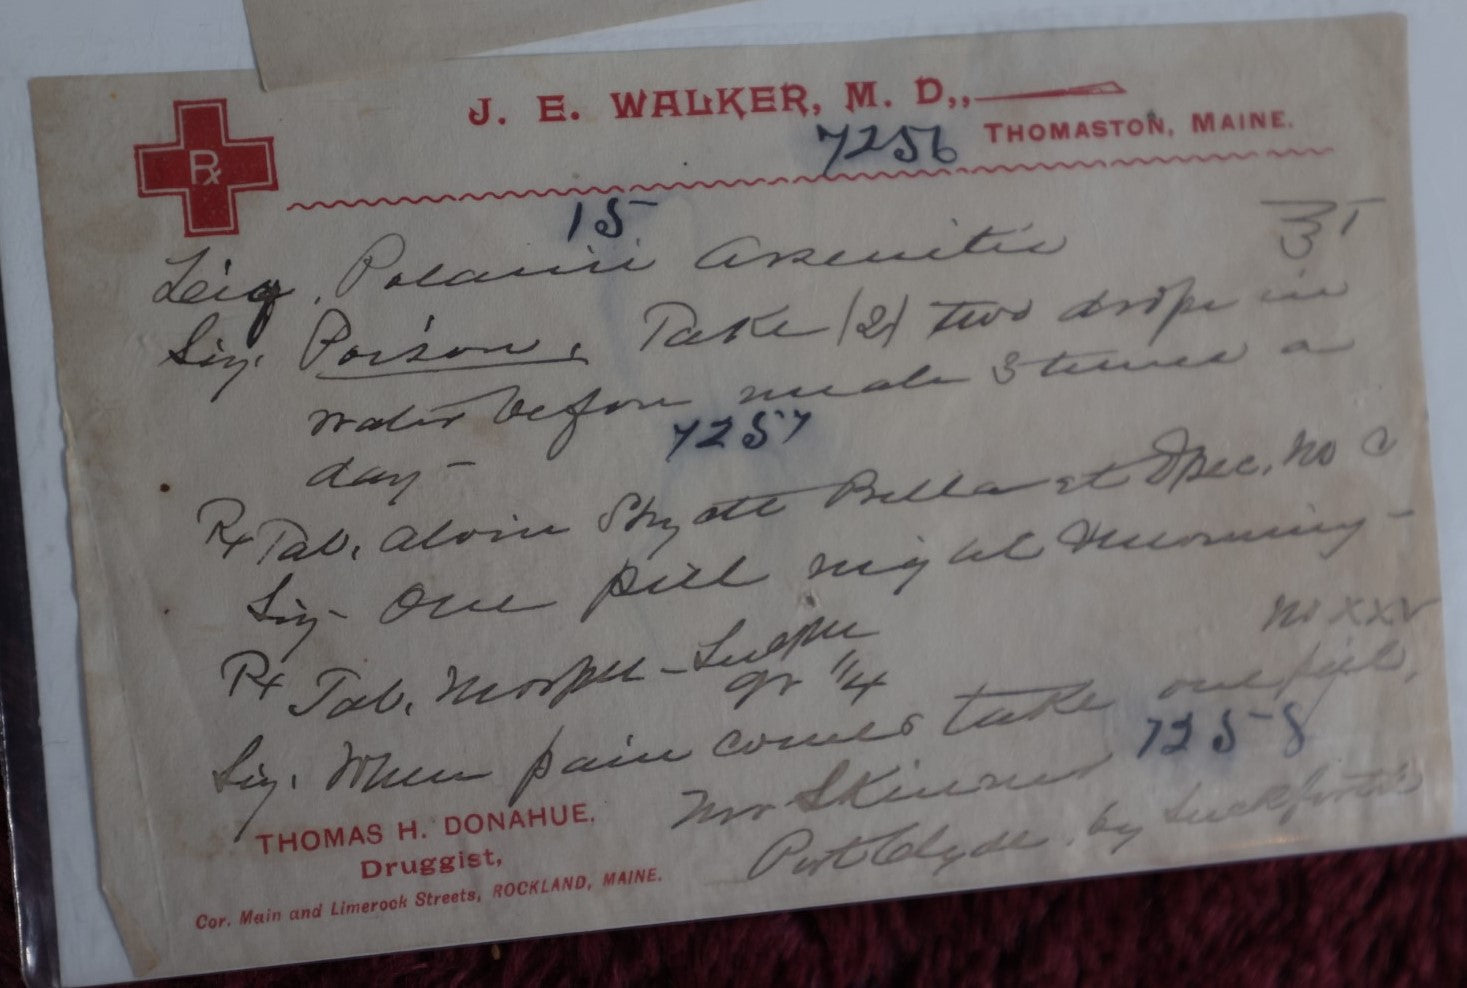 J. E. WALKER, M. D.,
Rx
THOMASTON, MAINE.
7256
15
Liq. Potassii Arsenitis ʒ T
Sig. Poison. Take (2) two drops in
water before meals 3 times a
day —
7257
Rx Tab. Aloin Strych Bella et Ipec. No C
Sig — One pill night & morning —
Rx Tab. Morph — Sulph No XXV
gr 1/4
Sig. When pain comes take one pill.
7258
Mr Skinner
Port Clyde. by
THOMAS H. DONAHUE.
Druggist,
Cor. Main and Limerock Streets, ROCKLAND, MAINE.